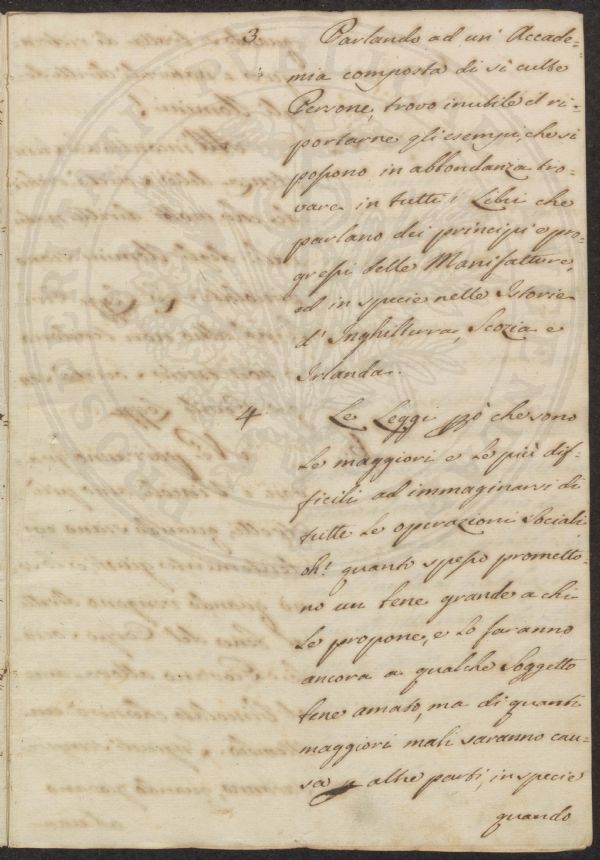 3 Parlando ad un' Accade-
mia composta di sì culte
Persone, trovo inutile il ri-
portarne gli esempi, che si
possono in abbondanza tro-
vare in tutti i Libri che
parlano dei principi e pro-
gressi delle Manifatture,
ed in specie nelle Istorie
d' Inghilterra, Scozia e
Irlanda.
4 Le Leggi però che sono
le maggiori e le più dif-
ficili ad immaginarsi di
tutte le operazioni sociali
oh! quanto spesso prometto-
no un bene grande a chi
le propone, e lo faranno
ancora a qualche soggetto
bene amato, ma di quanti
maggiori mali saranno cau-
sa p altre parti, in specie
quando
PROSPERITATI PUBLICAE